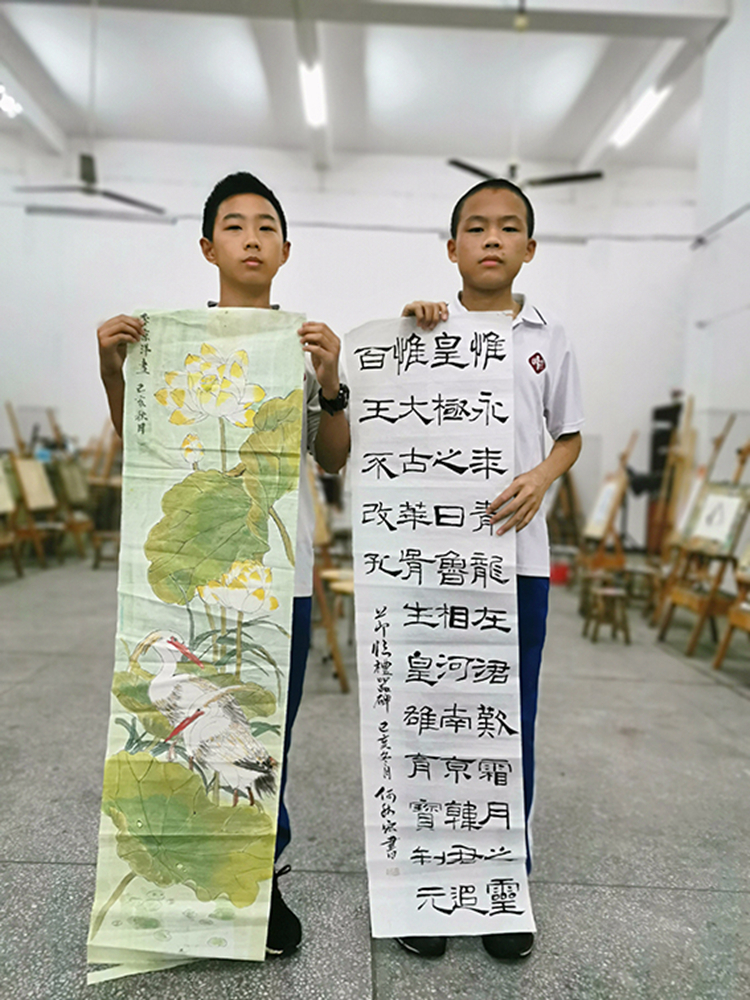 惟永年青龍在涒歎霜月之靈
皇極之日魯相河南京韓君追
惟大古華胥生皇雄育寶制元
百王不改孔
節臨禮器碑 己亥冬月 何書
己亥秋月